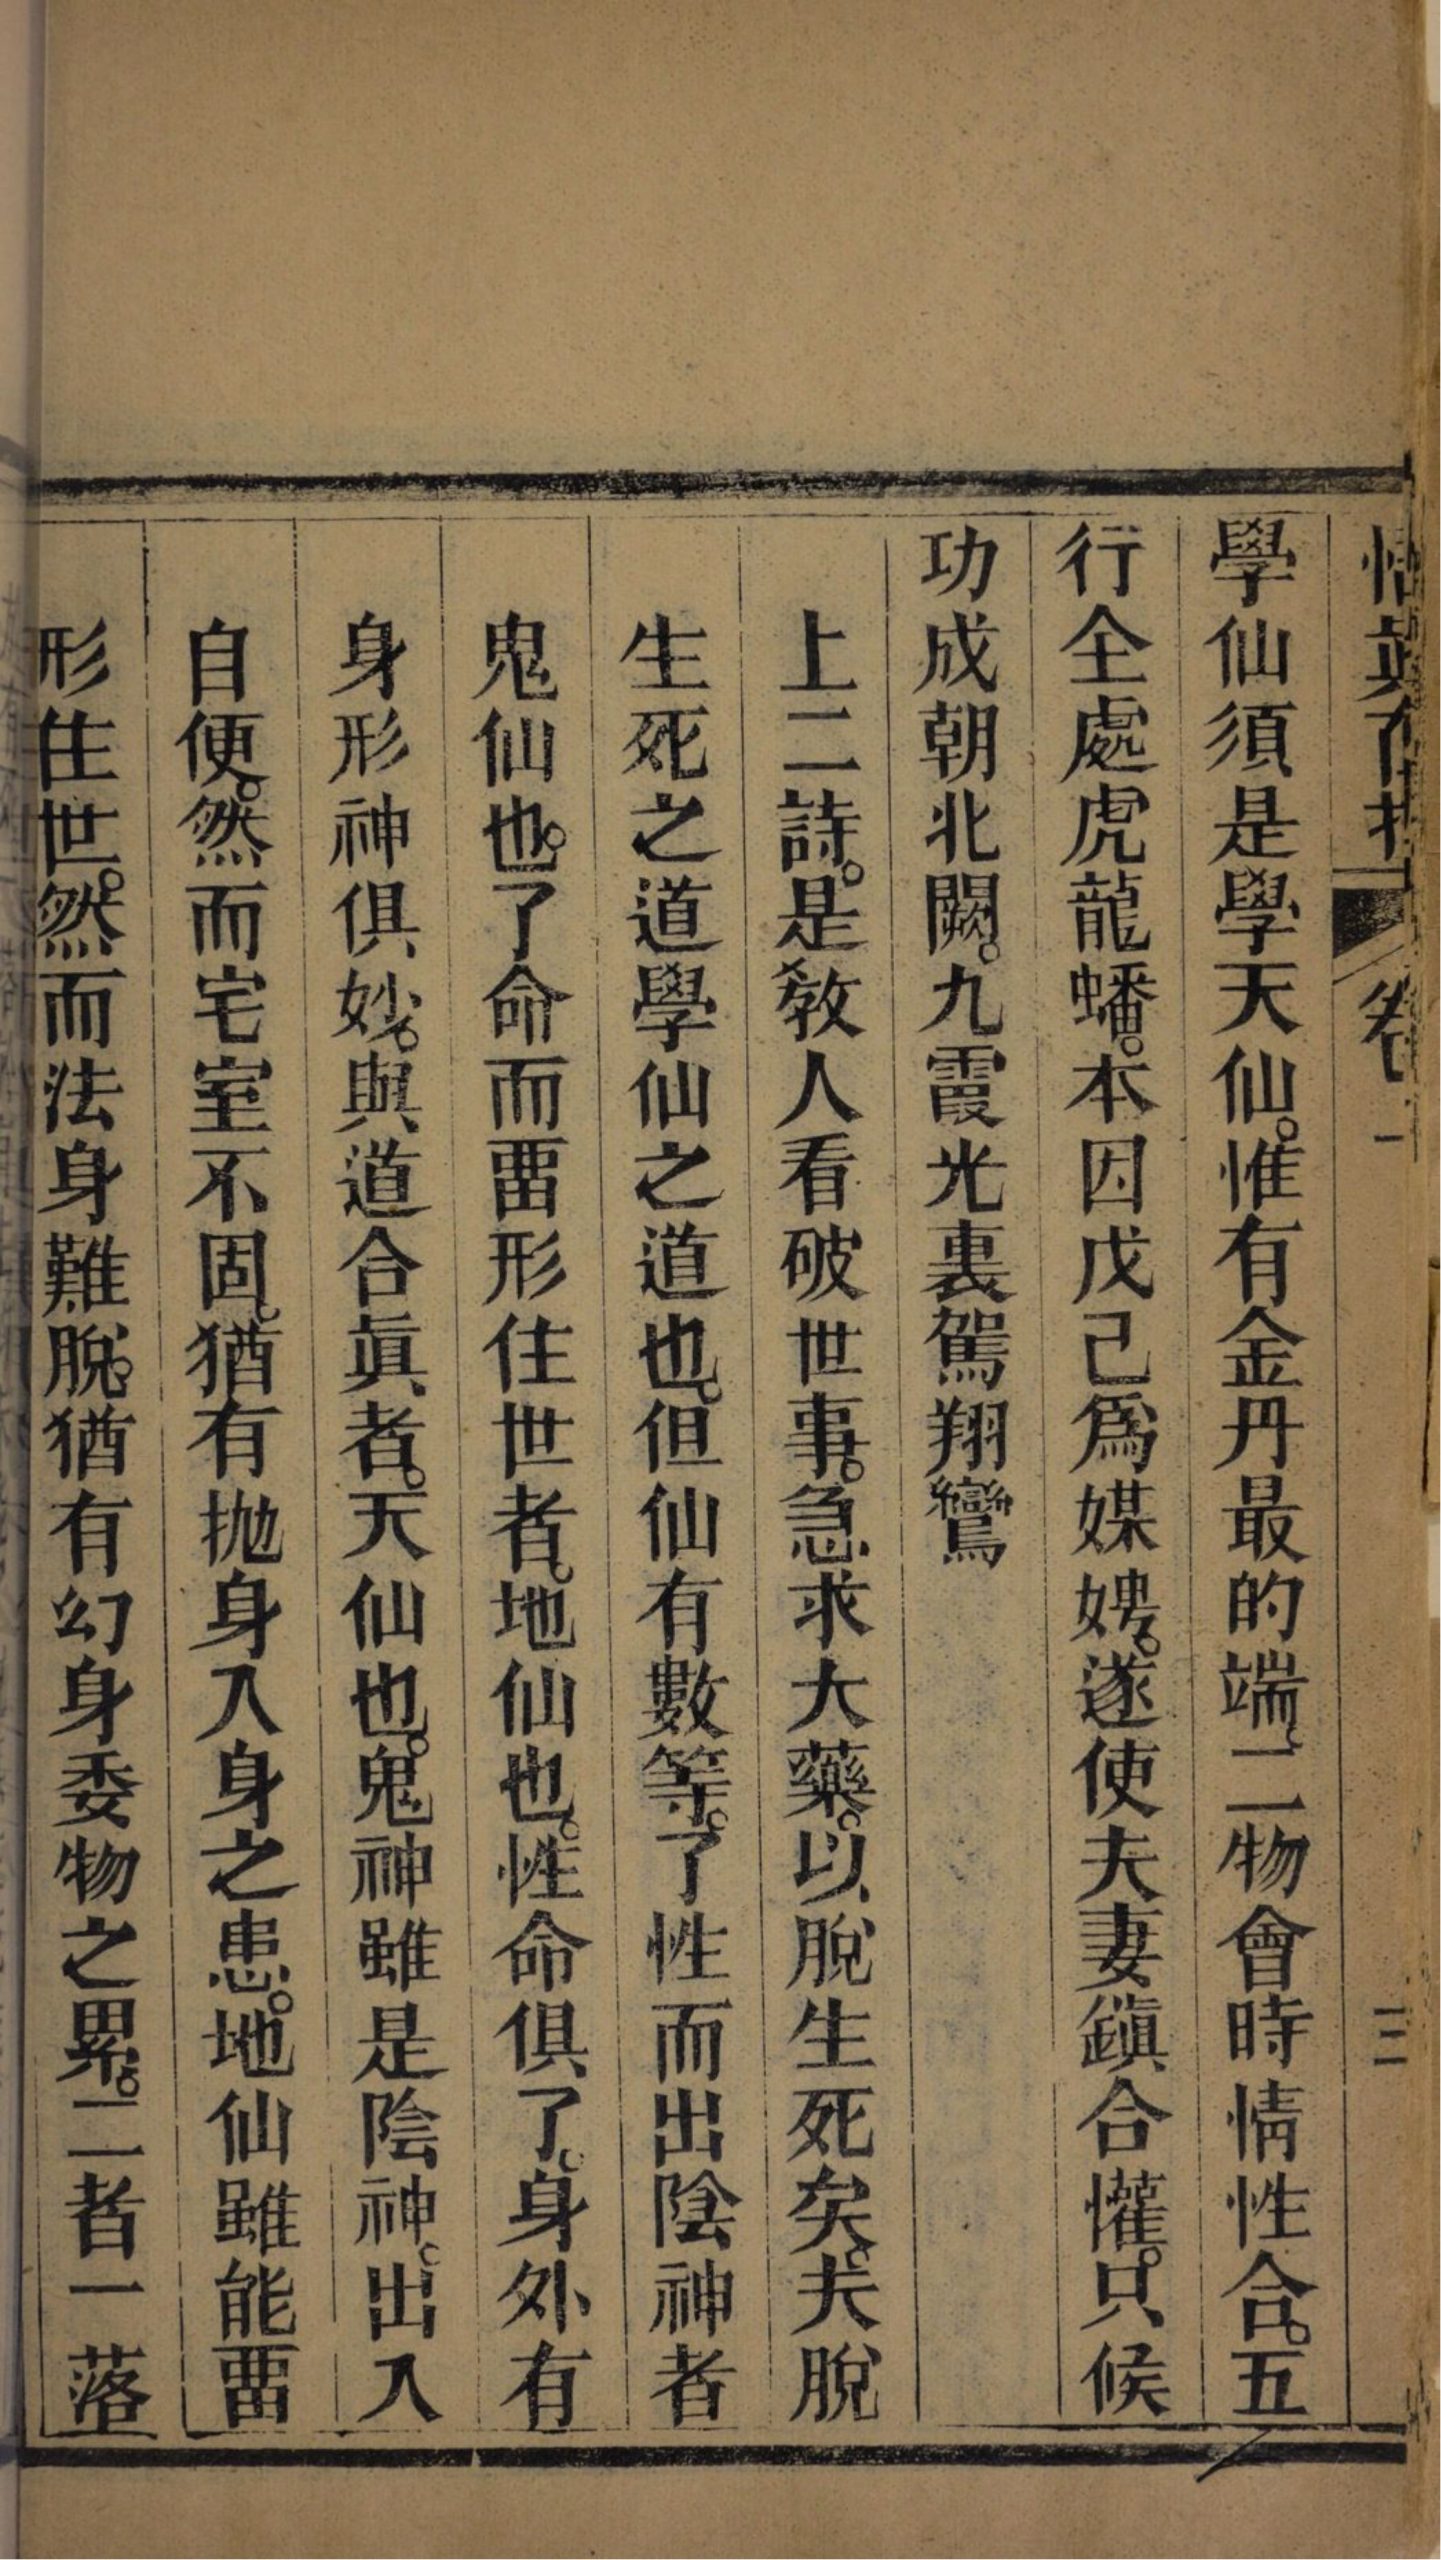 悟真直指 卷一 三
學仙須是學天仙。惟有金丹最的端。二物會時情性合。五
行全處虎龍蟠。本因戊己爲媒娉。遂使夫妻鎭合懽。只候
功成朝北闕。九霞光裏駕翔鸞
上二詩。是敎人看破世事。急求大藥。以脫生死矣。夫脫
生死之道學仙之道也。但仙有數等。了性而出陰神者
鬼仙也。了命而畱形住世者。地仙也。性命俱了。身外有
身形神俱妙。與道合眞者。天仙也。鬼神雖是陰神。出入
自便。然而宅室不固。猶有抛身入身之患。地仙雖能畱
形住世。然而法身難脫。猶有幻身委物之累。二者一落